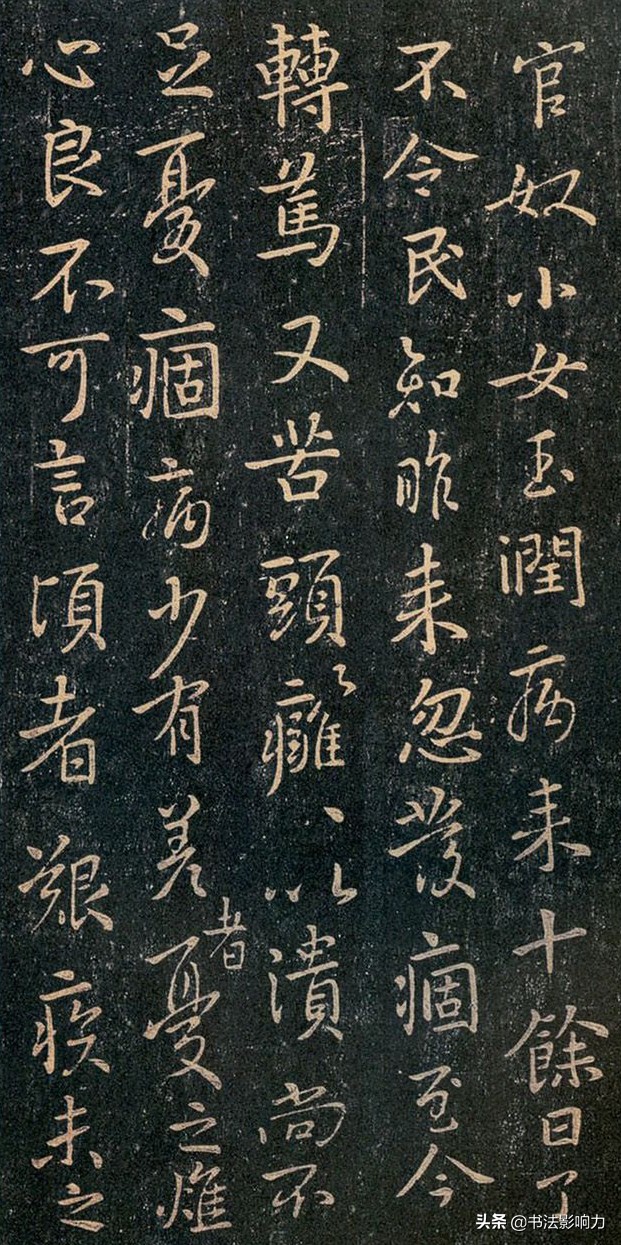 官奴小女玉潤病来十餘日了
不令民知昨来忽發痼至今
轉篤又苦頭癰々以潰尚不
足憂痼病少有差者憂之燋
心良不可言頃者艱疾未之
头条 @书法影响力